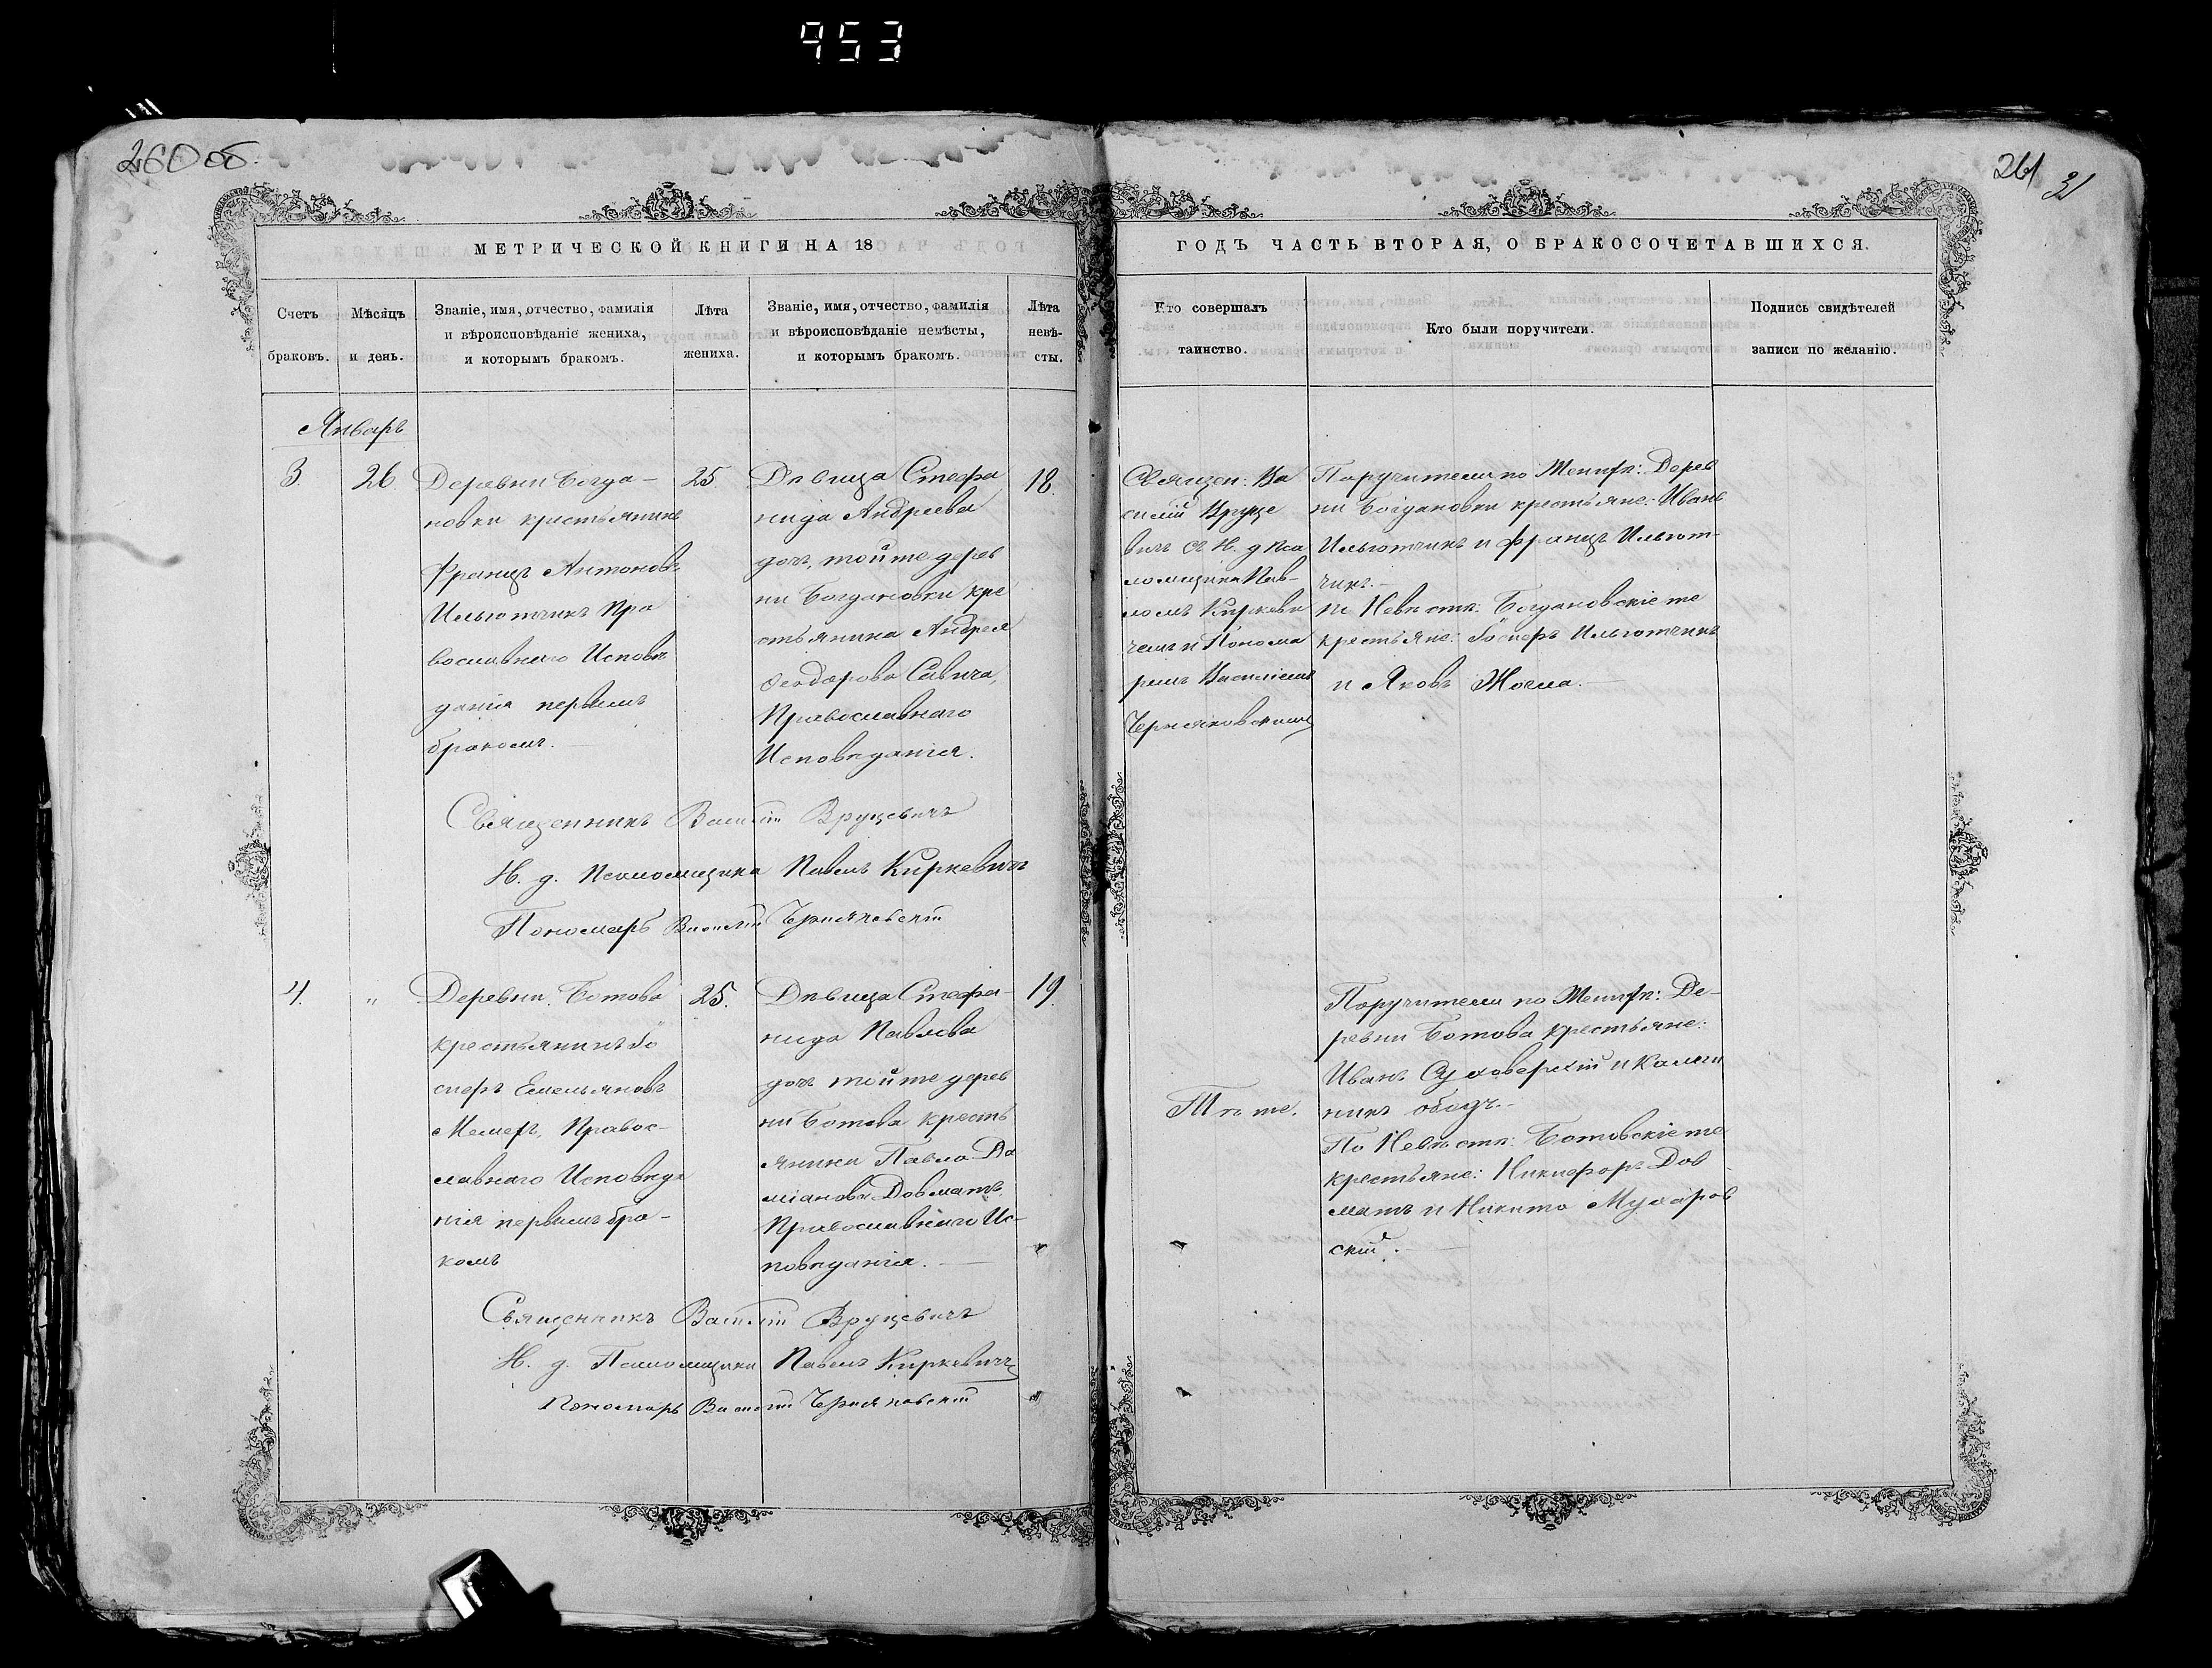 953
260 об.
261
31
МЕТРИЧЕСКОЙ КНИГИ НА 18
ГОДЪ ЧАСТЬ ВТОРАЯ, О БРАКОСОЧЕТАВШИХСЯ.
Счетъ
браковъ.
Мѣсяцъ
и день.
Званіе, имя, отчество, фамилія
и вѣроисповѣданіе жениха,
и которымъ бракомъ.
Лѣта
жениха.
Званіе, имя, отчество, фамилія
и вѣроисповѣданіе невѣсты,
и которымъ бракомъ.
Лѣта
невѣ-
сты.
Кто совершалъ
таинство.
Кто были поручители.
Подпись свидѣтелей
записи по желанію.
Январь
3.
26.
Деревни Богда-
новки крестьянинъ
Францъ Антоновъ
Ильютчикъ Пра
вославнаго Исповѣ
данія первымъ
бракомъ.
25
Дѣвица Стефа
нида Андреева
дочь, тойже дерев
ни Богдановки кре
стьянина Андрея
Феодорова Савича,
Православнаго
Исповѣданія.
18.
Священ: Ва
силій Вруце
вичъ съ И. д. Пса
ломщика Пав-
ломъ Киркеви
чемъ и Понома
ремъ Василіемъ
Черняковскимъ
Поручители по Женихѣ: Дерев
ни Богдановки крестьяне: Иванъ
Ильютчикъ и Францъ Ильют-
чикъ.-
по Невѣстѣ: Богдановскіе же
крестьяне: Госперъ Ильютчикъ
и Яковъ Жогла.
Священникъ Василій Вруцевичъ
И. д. Псаломщика Павелъ Киркевичъ
Пономарь Василій Черняковскій
4.
"
Деревни Ботова
крестьянинъ Го
сперъ Емельяновъ
Мемеръ, Правос-
лавнаго Исповѣда
нія первымъ бра-
комъ
25.
Дѣвица Стефа-
нида Павлова
дочь тойже дерев
ни Ботова кресть
янина Павла Да
міанова Довматъ,
Православнаго Ис-
повѣданія.
19.
Тѣ же.
Поручители по Женихѣ: Де-
ревни Ботова крестьяне:
Иванъ Суховерхій и Калин
никъ
По Невѣстѣ: Ботовскіе же
крестьяне: Никифоръ Дов
матъ и Никита Мухаров
скій.
Священникъ Василій Вруцевичъ
И. д. Псаломщика Павелъ Киркевичъ
Пономарь Василій Черняковскій